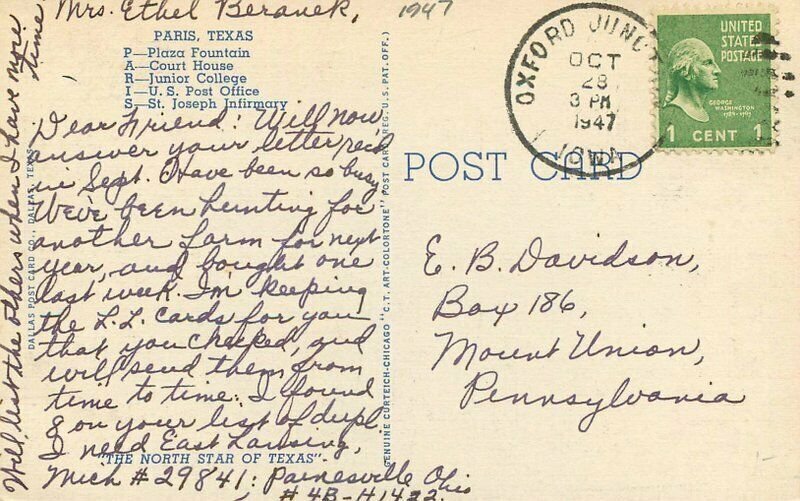 Mrs. Ethel Beranek,
1947
PARIS, TEXAS
P—Plaza Fountain
A—Court House
R—Junior College
I—U. S. Post Office
S—St. Joseph Infirmary
Dear Friend: Will now
answer your letter rec'd
in Sept. Have been so busy
We've been hunting for
another farm for next
year, and bought one
last week. I'm keeping
the L.L. Cards for you
that you checked, and
will send them from
time to time. I found
8 on your list of dupl.
I need East Lansing,
"THE NORTH STAR OF TEXAS"
Mich # 29841: Painesville Ohio
# 4B-H1422.
Will list the others when I have more
time
DALLAS POST CARD CO., DALLAS, TEXAS
GENUINE CURTEICH-CHICAGO "C.T. ART-COLORTONE" POST CARD (REG. U.S. PAT. OFF.)
POST CARD
OXFORD JUNCT
OCT
28
3 PM
1947
IOWA
UNITED
STATES
POSTAGE
GEORGE
WASHINGTON
1789-1797
1 CENT 1
E. B. Davidson,
Box 186,
Mount Union,
Pennsylvania